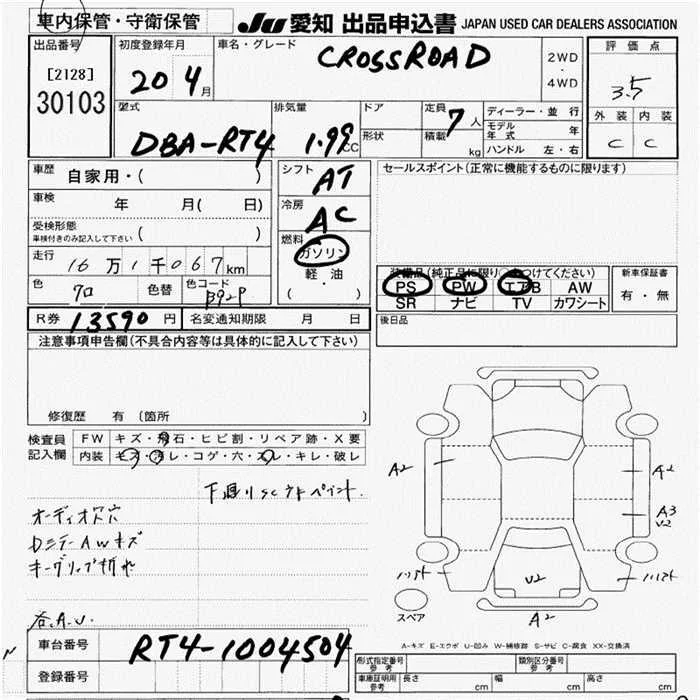 車内保管・守衛保管 JU 愛知 出品申込書 JAPAN USED CAR DEALERS ASSOCIATION
出品番号 初度登録年月 車名・グレード 評価点
[2128] 30103
20 4月 CROSSROAD 2WD・4WD 3.5
型式 排気量 ドア 定員 ディーラー・並行 外装 内装
DBA-RT4 1.99 CC 形状 7人 積載 kg モデル年式 年 C C
ハンドル 左・右
車歴 自家用・( ) シフト AT セールスポイント(正常に機能するものに限ります)
車検 年 月( 日) 冷房 AC
受検形態 ( )
車検付きのみ記入して下さい
燃料 ガソリン
走行 16万1千067km 軽・油
装備品(純正品に限り つけてください) 新車保証書
PS PW エアB AW 有・無
色 クロ 色替 色コード B92P ( ・ )
SR ナビ TV カワシート
R券 13590円 名変通知期限 月 日 後日品
注意事項申告欄(不具合内容等は具体的に記入して下さい)
修復歴 有(箇所
検査員記入欄 FW キズ・飛石・ヒビ割・リペア跡・X要
内装 キズ・汚レ・コゲ・穴・スレ・キレ・破レ
下廻りSCサビペイント
A2 A2
オーディオ穴 A3
U2
キーグリップ折れ
U2
スペア A2
A-キズ E-エクボ U-凹み W-補修跡 S-サビ C-腐食 XX-交換済
車台番号 RT4-1004504
登録番号
型式指定番号 参考 類別区分番号 参考
車庫証明用 参考 長さ cm 幅 cm 高さ cm